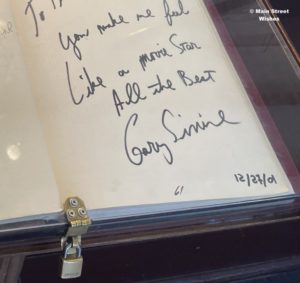 © Main Street
Wishes
To
You make me feel
Like a movie star
All the Best
Gary Sinise
61
12/27/01